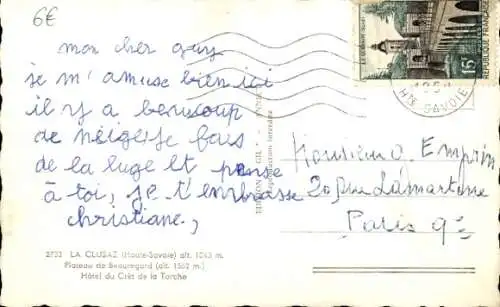 6€
mon cher guy
je m'amuse bien ici
il y a beaucoup
de neige je fais
de la luge et pense
à toi, je t'embrasse
christiane,
2733 LA CLUSAZ (Haute-Savoie) alt. 1043 m.
Plateau de Beauregard (alt. 1562 m.)
Hôtel du Crêt de la Torche
Reproduction interdite
15F
REPUBLIQUE FRANÇAISE
HTE SAVOIE
Monsieur O. Emprin
20 Rue Lamartine
Paris 9e